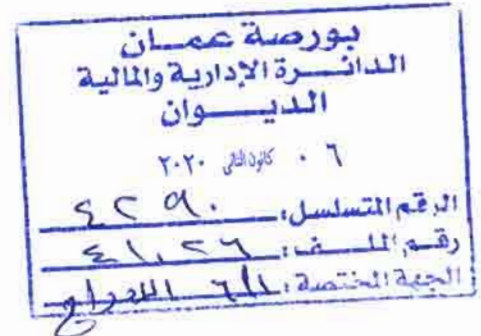 بورصة عمان
الدائرة الإدارية والمالية
الديوان
٠٦ كانون الثاني ٢٠٢٠
الرقم المتسلسل: ٤٢٩٠
رقم الملف: ٤١,٢٦
الجهة المختصة: الادراج